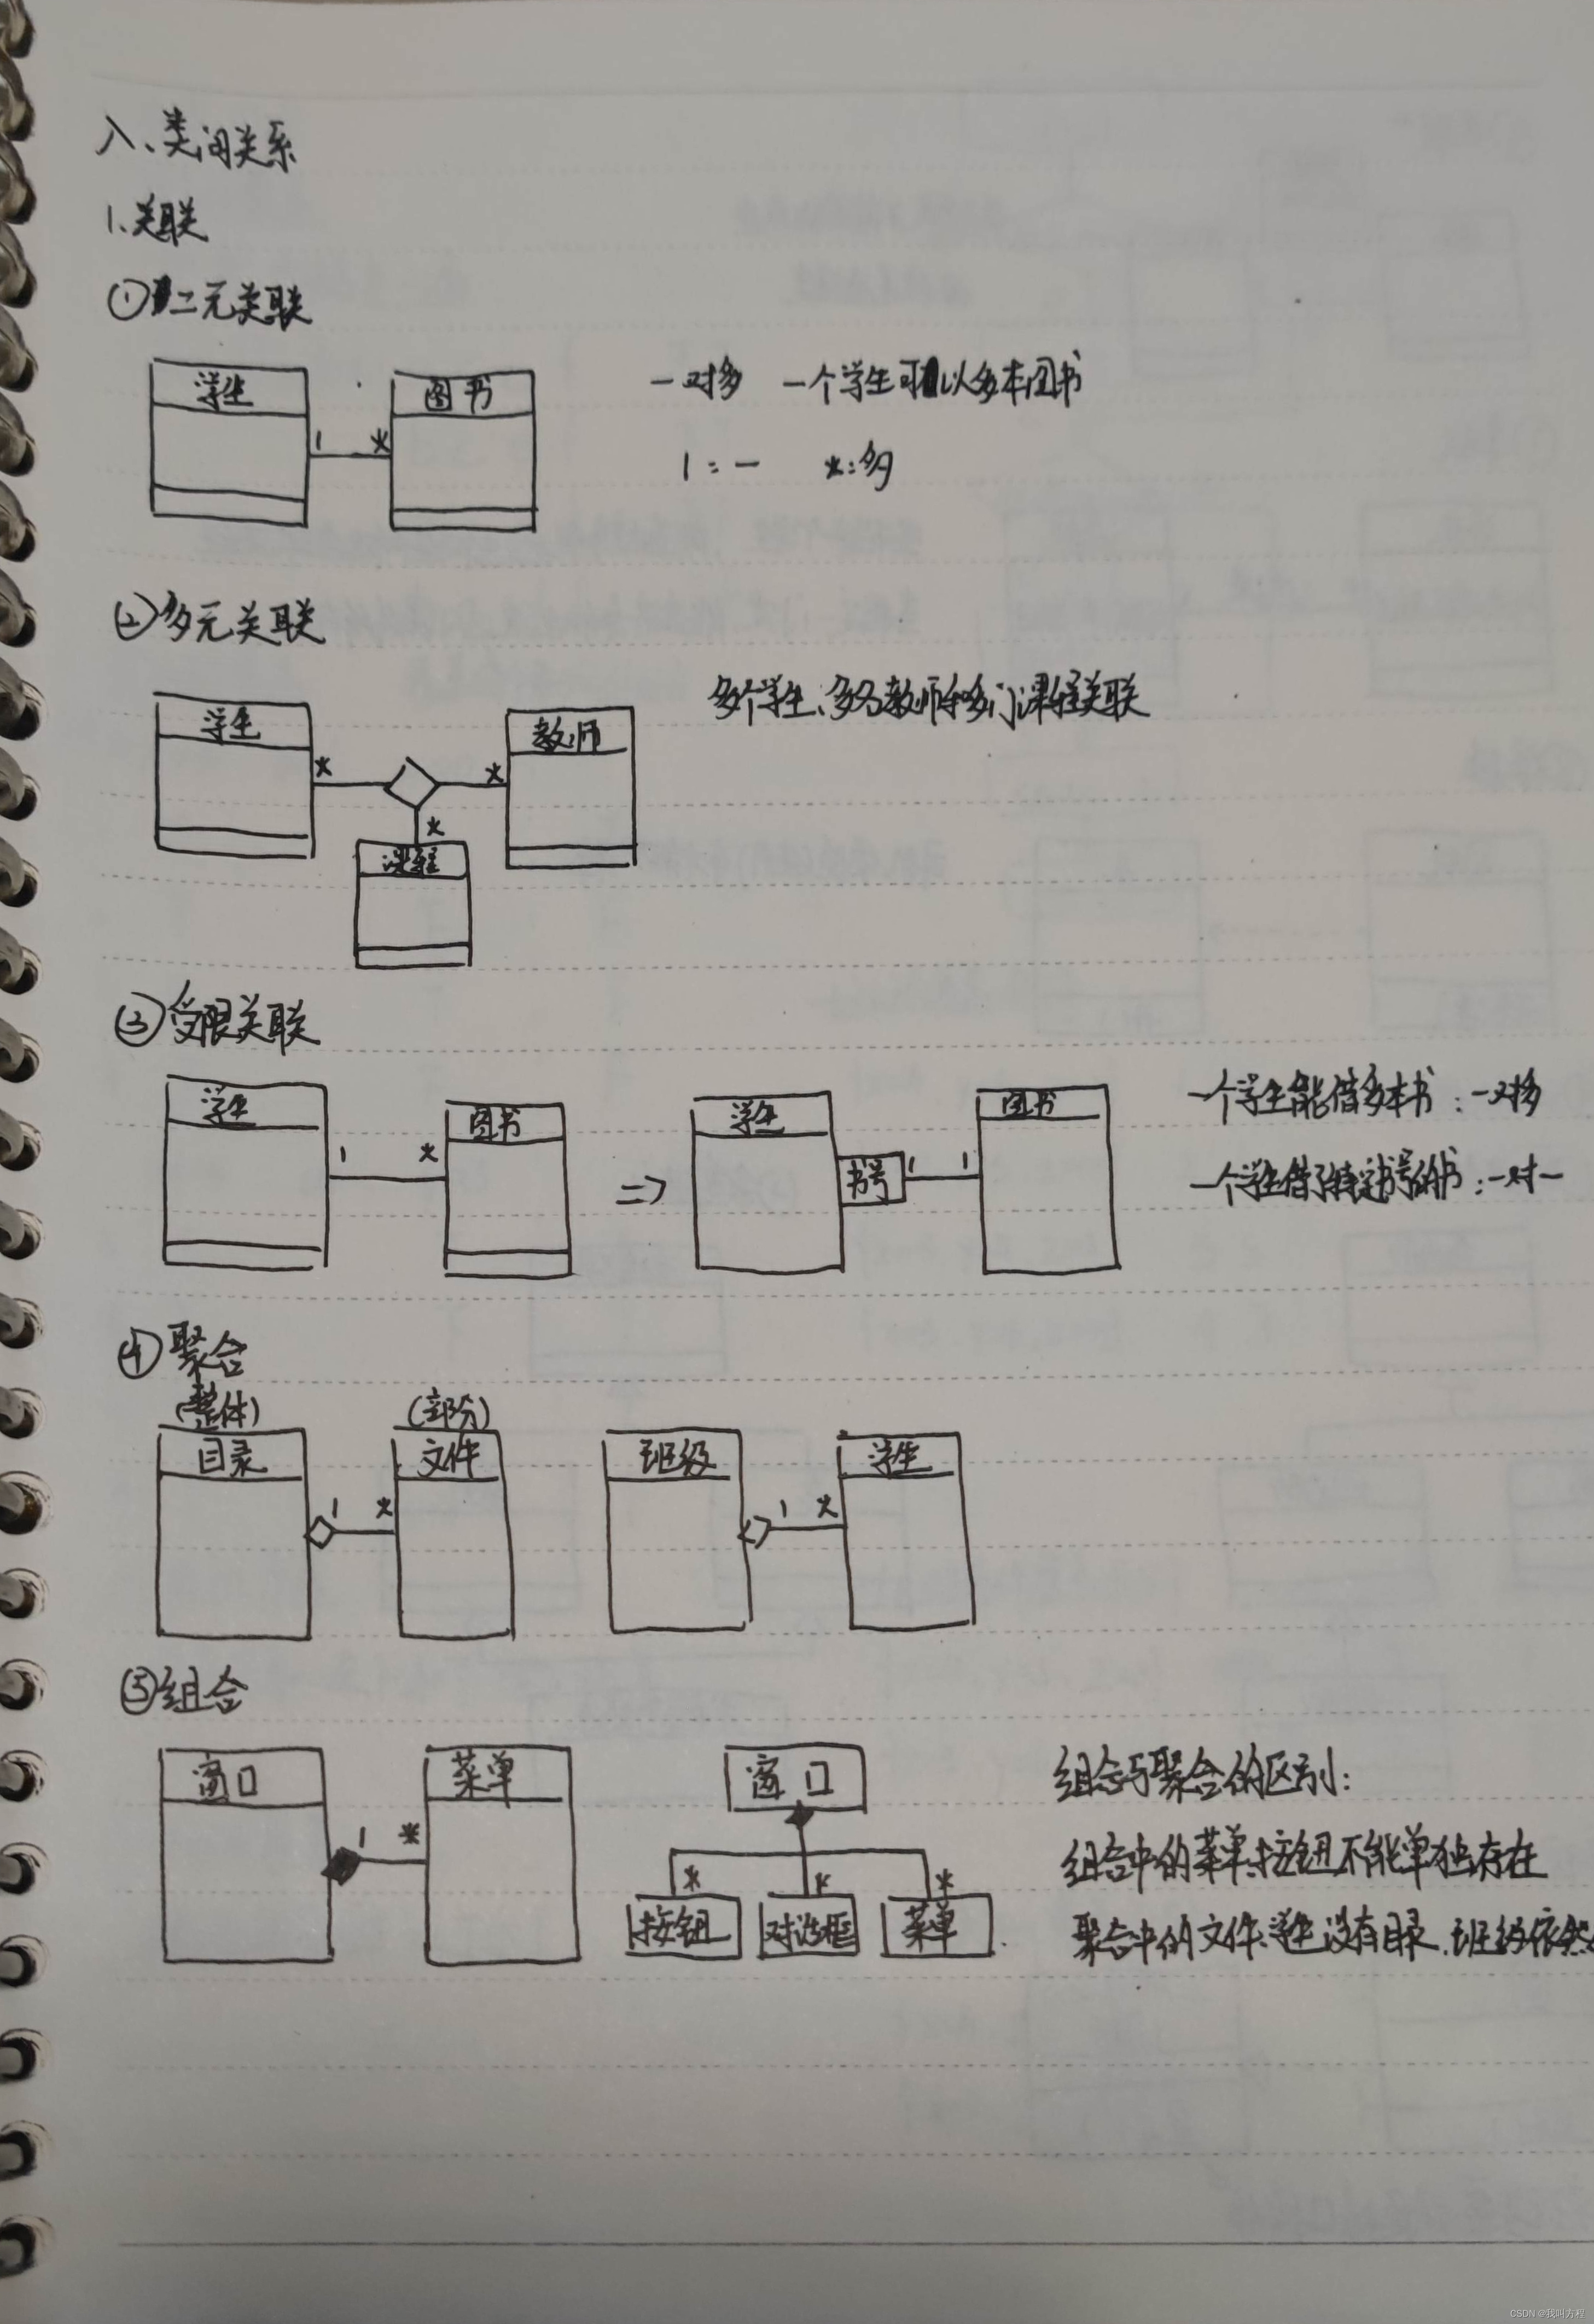 八、类间关系
1.关联
①二元关联
学生 图书 一对多 一个学生可以多本图书
1 * 1:一 *:多
②多元关联
多个学生、多名教师和多门课程关联
学生 教师
* *
*
课程
③受限关联
学生 图书 学生 图书 一个学生能借多本书:一对多
1 * => 书号 1 1 一个学生借了特定书号的书:一对一
④聚合
(整体) (部分)
目录 文件 班级 学生
1 * 1 *
⑤组合
窗口 菜单 窗口 组合与聚合的区别:
1 * 组合中的菜单、按钮不能单独存在
* * *
按钮 对话框 菜单 聚合中的文件、学生没有目录、班级依然
CSDN @我叫方程